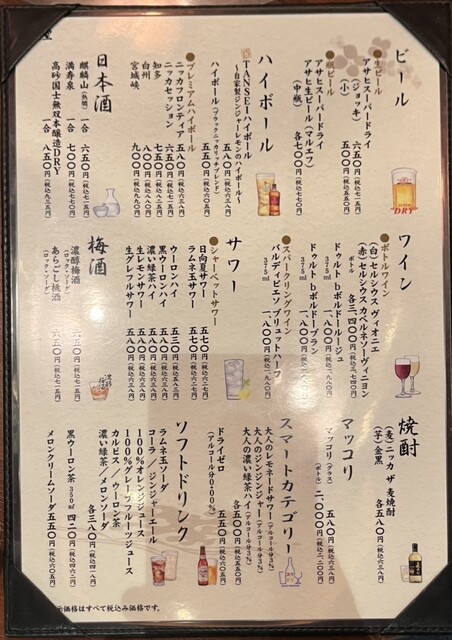 ビール
●生ビール
アサヒスーパードライ
(ジョッキ) 六五〇円(税込七一五円)
(小) 五〇〇円(税込五五〇円)
●瓶ビール
アサヒスーパードライ
アサヒ生ビール(マルエフ)
(中瓶) 各七〇〇円
ハイボール
TANSEIハイボール
～自家製ジンジャーレモンのハイボール～
五八〇円(税込六三八円)
ハイボール(ブラックニッカリッチブレンド)
五五〇円
●プレミアムハイボール
ニッカフロンティア 五八〇円(税込六三八円)
ニッカセッション
知多
白州
宮城峡 九〇〇円
日本酒
麒麟山(熱燗) 一合 六五〇円(税込七一五円)
満寿泉 一合 七〇〇円(税込七七〇円)
高砂国士無双本醸造DRY
一合 八五〇円(税込九三五円)
ワイン
●ボトルワイン
(白)セルシウス ヴィオニエ
(赤)セルシウス カベルネソーヴィニヨン
ボトル 各三、四〇〇円(税込三、七四〇円)
ドゥルト bボルドールージュ
375ml 一、八〇〇円
ドゥルト bボルドーブラン
375ml 一、八〇〇円
●スパークリングワイン
バルディビエソ ブリュットハーフ
375ml 一、八〇〇円
サワー
日向夏サワー 五七〇円(税込六二七円)
ラムネ玉サワー 五七〇円(税込六二七円)
●シャーベットサワー
ウーロンハイ 五三〇円(税込五八三円)
黒ウーロンハイ
濃い緑茶ハイ
生レモンサワー
生グレフルサワー 五八〇円(税込六三八円)
梅酒
濃醇梅酒
(ロック・ソーダ) 六五〇円(税込七一五円)
あらごし桃酒
(ロック・ソーダ) 六五〇円(税込七一五円)
焼酎
(麦)ニッカ ザ 麦焼酎
(芋)金黒
各五八〇円(税込六三八円)
マッコリ
マッコリ(グラス) 五八〇円(税込六三八円)
(ボトル) 二、〇〇〇円(税込二、二〇〇円)
スマートカテゴリー
大人のレモネードサワー(アルコール分3%)
大人のジンジンジャー(アルコール分3%)
大人の濃い緑茶ハイ(アルコール分3%)
各五五〇円
ドライゼロ
(アルコール分0.00%) 五五〇円(税込六〇五円)
ソフトドリンク
ラムネ玉ソーダ
コーラ/ジンジャーエール
100%オレンジジュース
100%グレープフルーツジュース
カルピス/ウーロン茶
濃い緑茶/メロンソーダ
各三八〇円(税込四一八円)
黒ウーロン茶 350ml 四二〇円(税込四六二円)
メロンクリームソーダ 五五〇円(税込六〇五円)
示価格はすべて税込み価格です。